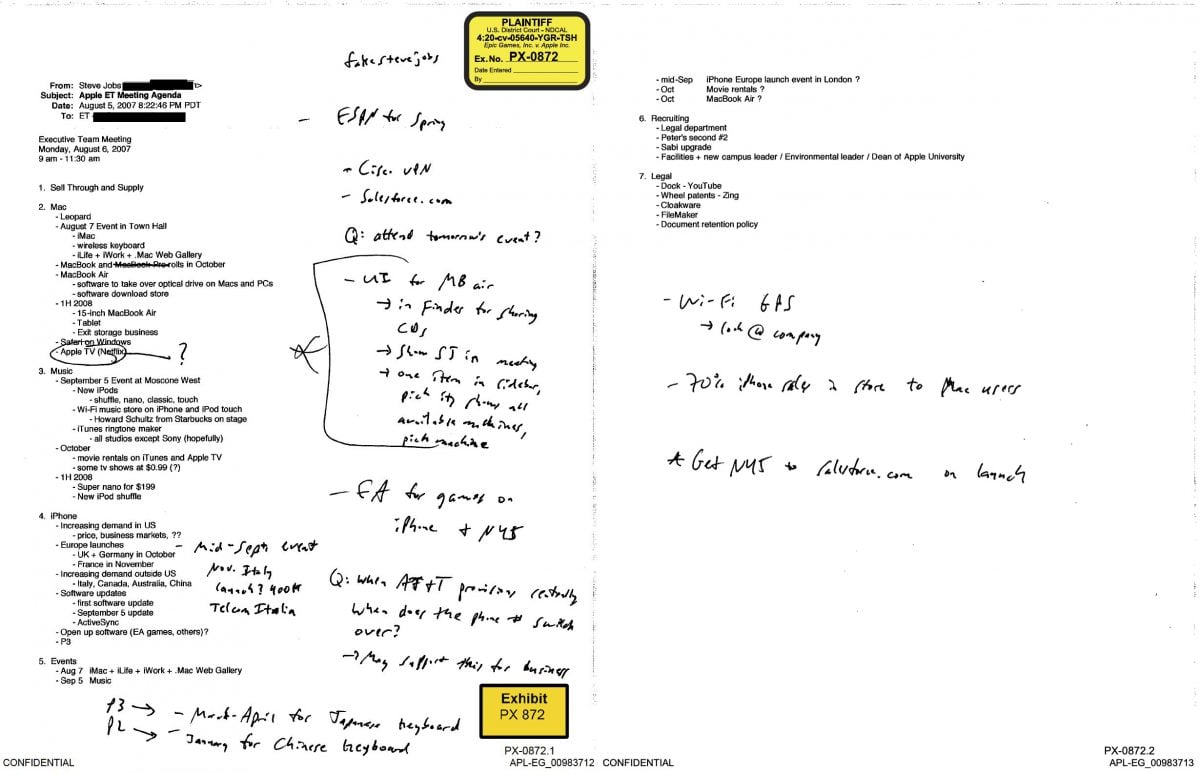 PLAINTIFF
U.S. District Court - NDCAL
4:20-cv-05640-YGR-TSH
Epic Games, Inc. v. Apple Inc.
Ex.No. PX-0872
Date Entered
By
fakestevejobs
From: Steve Jobs
Subject: Apple ET Meeting Agenda
Date: August 5, 2007 8:22:46 PM PDT
To: ET
Executive Team Meeting
Monday, August 6, 2007
9 am - 11:30 am
1. Sell Through and Supply
2. Mac
- Leopard
- August 7 Event in Town Hall
- iMac
- wireless keyboard
- iLife + iWork + .Mac Web Gallery
- MacBook and MacBook Pro rolls in October
- MacBook Air
- software to take over optical drive on Macs and PCs
- software download store
- 1H 2008
- 15-inch MacBook Air
- Tablet
- Exit storage business
- Safari on Windows
- Apple TV (Netflix) ?
3. Music
- September 5 Event at Moscone West
- New iPods
- shuffle, nano, classic, touch
- Wi-Fi music store on iPhone and iPod touch
- Howard Schultz from Starbucks on stage
- iTunes ringtone maker
- all studios except Sony (hopefully)
- October
- movie rentals on iTunes and Apple TV
- some tv shows at $0.99 (?)
- 1H 2008
- Super nano for $199
- New iPod shuffle
4. iPhone
- Increasing demand in US
- price, business markets, ??
- Europe launches
- UK + Germany in October
- France in November
- Increasing demand outside US
- Italy, Canada, Australia, China
- Software updates
- first software update
- September 5 update
- ActiveSync
- Open up software (EA games, others)?
- P3
5. Events
- Aug 7 iMac + iLife + iWork + .Mac Web Gallery
- Sep 5 Music
- Mid-Sept event
Nov. Italy
launch? 400K
Telecom Italia
P3 → - March-April for Japanese keyboard
P2 → - January for Chinese keyboard
- ESPN for Spring
- Cisco VPN
- Salesforce.com
Q: attend tomorrow's event?
- UI for MB air
→ in Finder for sharing
CDs
→ Show SJ in meeting
→ one item in sidebar,
pick it, shows all
available machines,
pick machine
- EA for games on
iPhone + N45
Q: when AT+T provisions
when does the phone # switch
over?
→ May support this for business
Exhibit
PX 872
PX-0872.1
CONFIDENTIAL
APL-EG_00983712
- mid-Sep iPhone Europe launch event in London ?
- Oct Movie rentals ?
- Oct MacBook Air ?
6. Recruiting
- Legal department
- Peter's second #2
- Sabi upgrade
- Facilities + new campus leader / Environmental leader / Dean of Apple University
7. Legal
- Dock - YouTube
- Wheel patents - Zing
- Cloakware
- FileMaker
- Document retention policy
- Wi-Fi GPS
→ look @ company
- 70% iPhone sales in store to Mac users
* Get N45 to salesforce.com on launch
PX-0872.2
CONFIDENTIAL
APL-EG_00983713